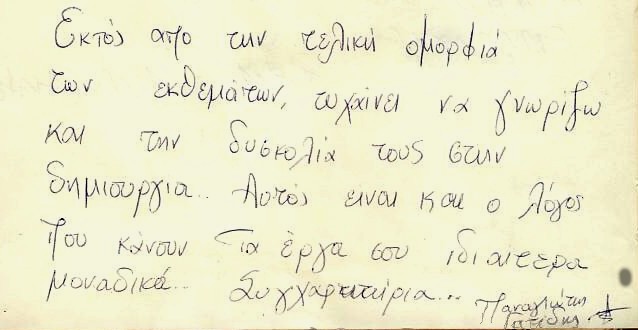 Εκτός απο την τελική ομορφιά
των εκθεμάτων, τυχαίνει να γνωρίζω
και την δυσκολία τους στην
δημιουργια.. Αυτός ειναι και ο λόγος
που κάνουν τα έργα σου ιδιαιτερα
μοναδικά... Συγχαρητήρια...
Παναγιώτης